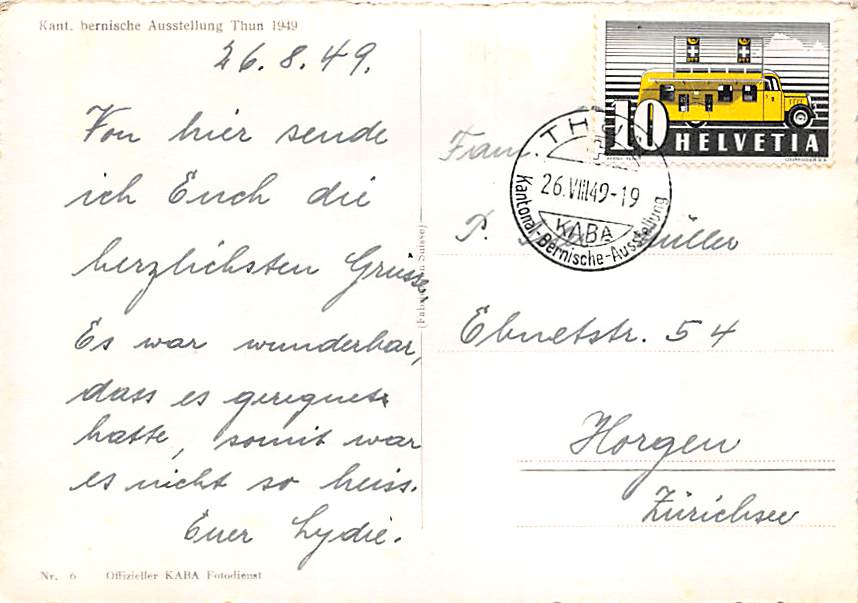 Kant. bernische Ausstellung Thun 1949
26. 8. 49.
Von hier sende
ich Euch die
herzlichsten Grüsse.
Es war wunderbar,
dass es geregnet
hatte, somit war
es nicht so heiss.
Euer Lydie.
Nr. 6 Offizieller KABA Fotodienst
10
HELVETIA
COURVOISIER S.A.
THUN
26.VIII.49-19
KABA
Kantonal-Bernische-Ausstellung
Fam.
P. Müller
Ebnetstr. 54
Horgen
Zürichsee